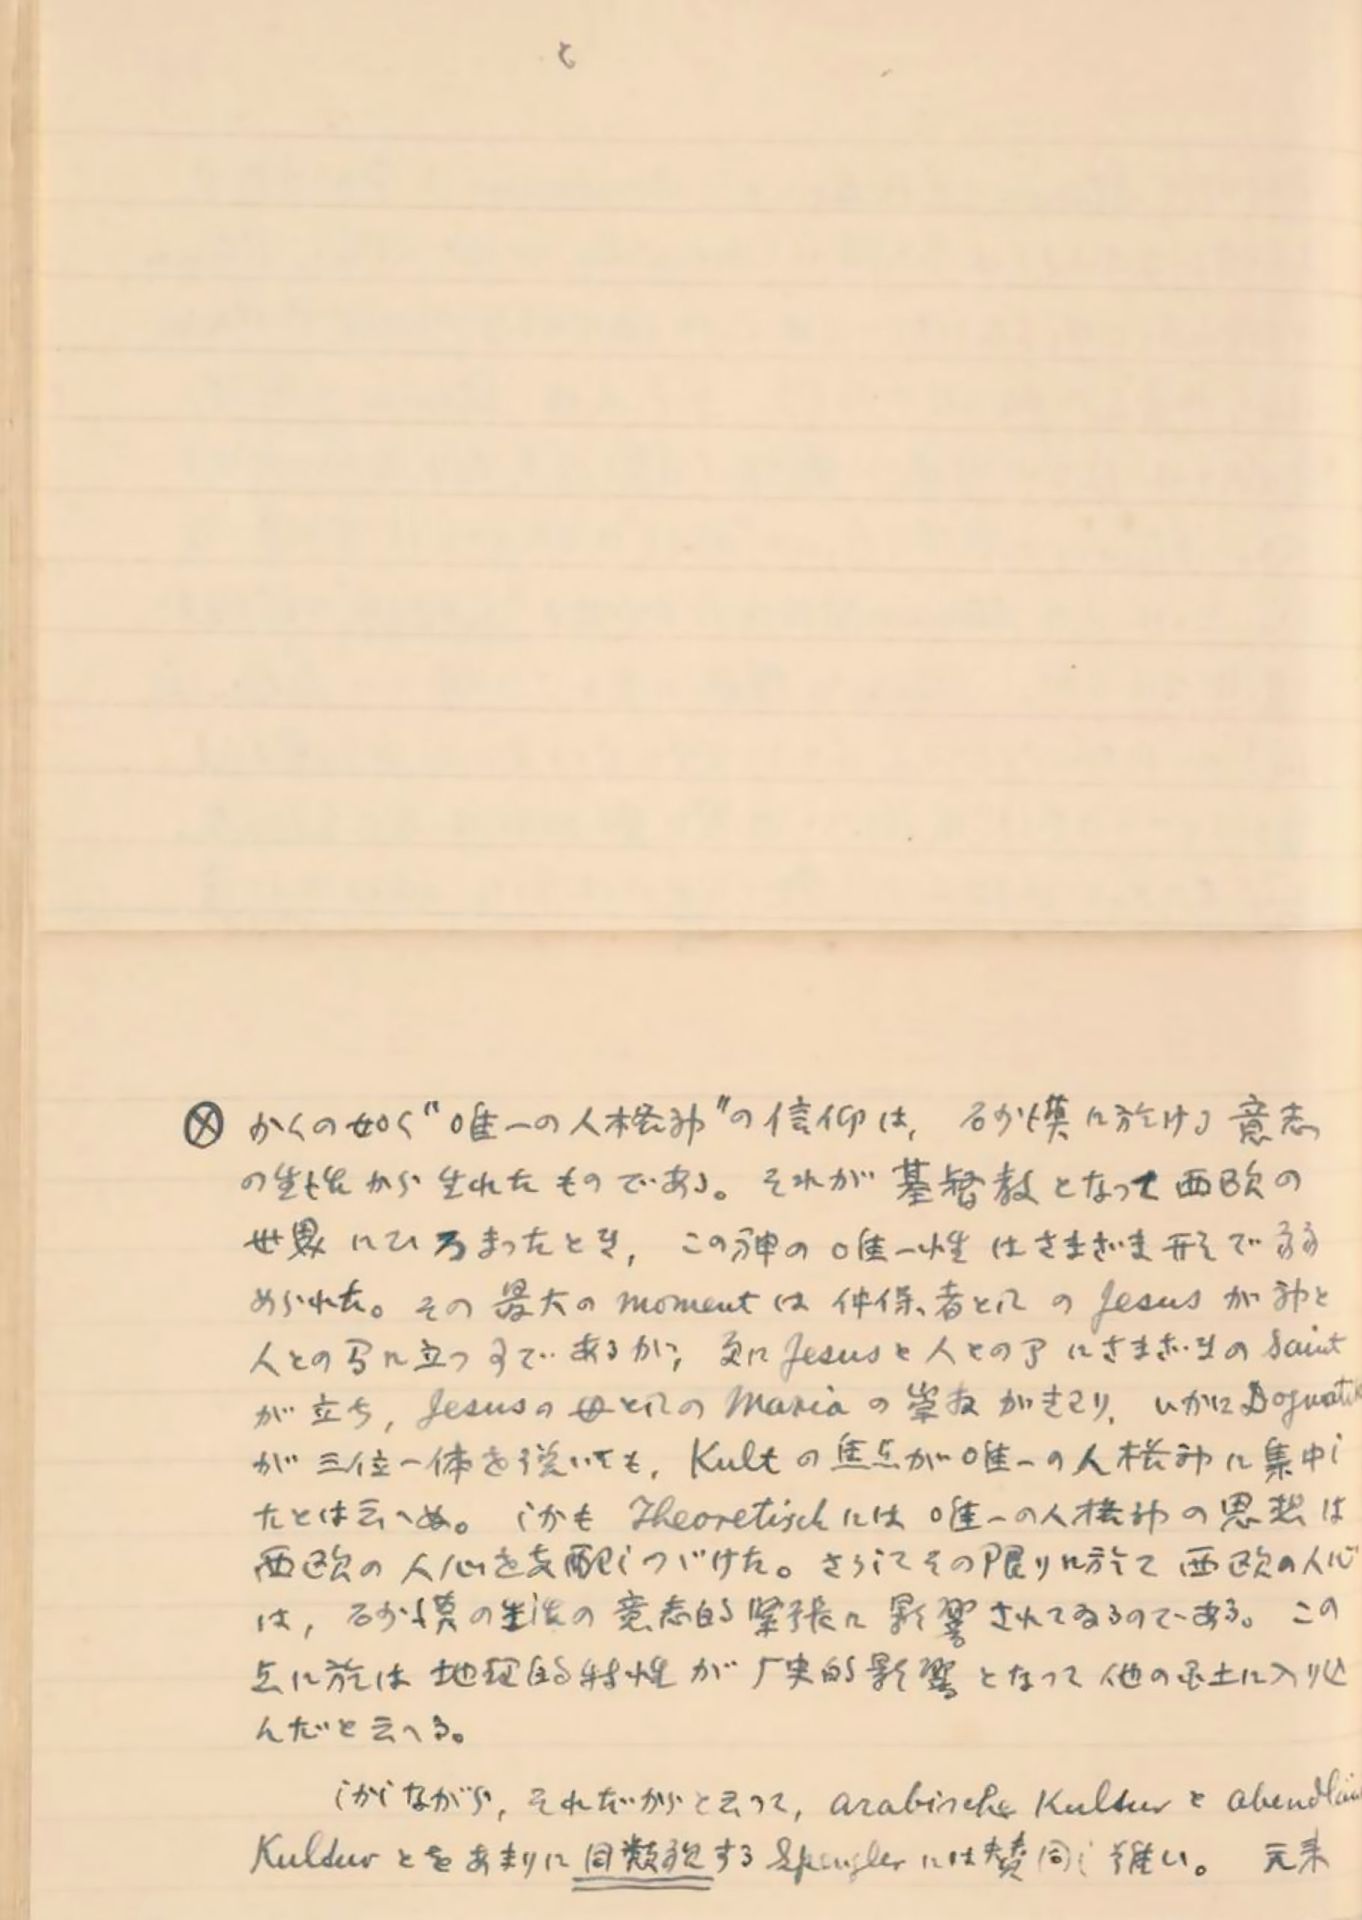 と
Ⓧ かくの如く“唯一の人格神”の信仰は, 砂漠に於ける意志
の生活から生れたものである。それが基督教となって西欧の
世界にひろまったとき, この神の唯一性はさまざま形で弱
められた。その最大の moment は仲保者としての Jesus が神と
人との間に立つ事であるが, 更に Jesus と人との間にさまざまの Saint
が立ち, Jesus の母としての Maria の崇敬が, いかに Dogmatik
が三位一体を説いても, Kult の焦点が唯一の人格神に集中し
たとは云へぬ。しかも Theoretisch には唯一の人格神の思想は
西欧の人心を支配しつづけた。さうしてその限りに於て西欧の人心
は, 砂漠の生活の意志的緊張に影響されてゐるのである。この
点に於ては地理的特性が歴史的影響となって他の国土に入り込
んだと云へる。
しかしながら, それだからと云つて, arabische Kultur と abendlän
Kultur とをあまりに同類視する Spengler には賛同し難い。 元来